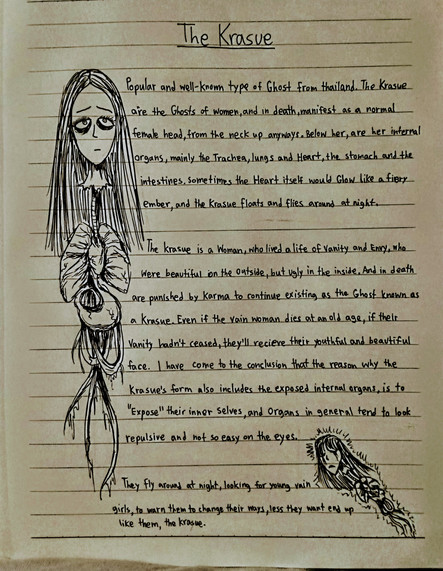 The Krasue
Popular and well-known type of Ghost from thailand. The Krasue
are the Ghosts of women, and in death, manifest as a normal
female head, from the neck up anyways. Below her, are her internal
organs, mainly the Trachea, lungs and Heart, the stomach and the
intestines. sometimes the Heart itself would Glow like a fiery
ember, and the Krasue floats and flies around at night.
The krasue is a Woman, who lived a life of Vanity and Envy, who
were beautiful on the outside, but ugly in the inside. And in death
are punished by Karma to continue existing as the Ghost known as
a Krasue. Even if the vain woman dies at an old age, if their
Vanity hadn't ceased, they'll recieve their youthful and beautiful
face. I have come to the conclusion that the reason why the
Krasue's form also includes the exposed internal organs, is to
"Expose" their inner selves, and Organs in general tend to look
repulsive and not so easy on the eyes.
They fly around at night, looking for young vain
girls, to warn them to change their ways, less they want end up
like them, the krasue.